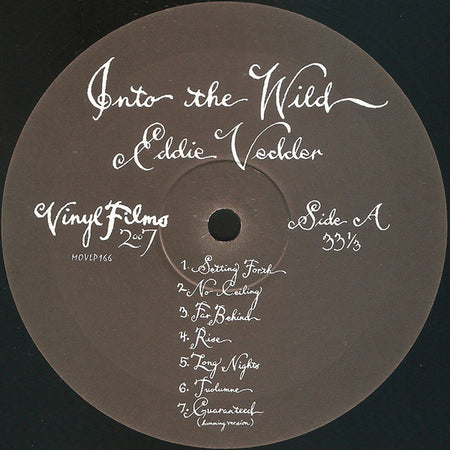 Into the Wild
Eddie Vedder
Vinyl Films
2007
MOVLP166
Side A
33 1/3
1. Setting Forth
2. No Ceiling
3. Far Behind
4. Rise
5. Long Nights
6. Tuolumne
7. Guaranteed
(humming version)